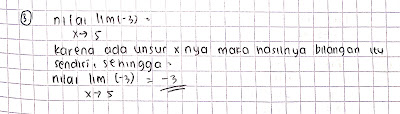 ③ nilai lim (-3) =
x→5
karena ada unsur x nya maka hasilnya bilangan itu
sendiri, sehingga =
nilai lim (-3) = -3
x→5